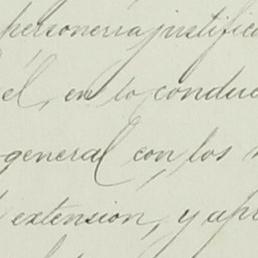 personerra justifica
él, en lo conduc
general con los
extension, y apl